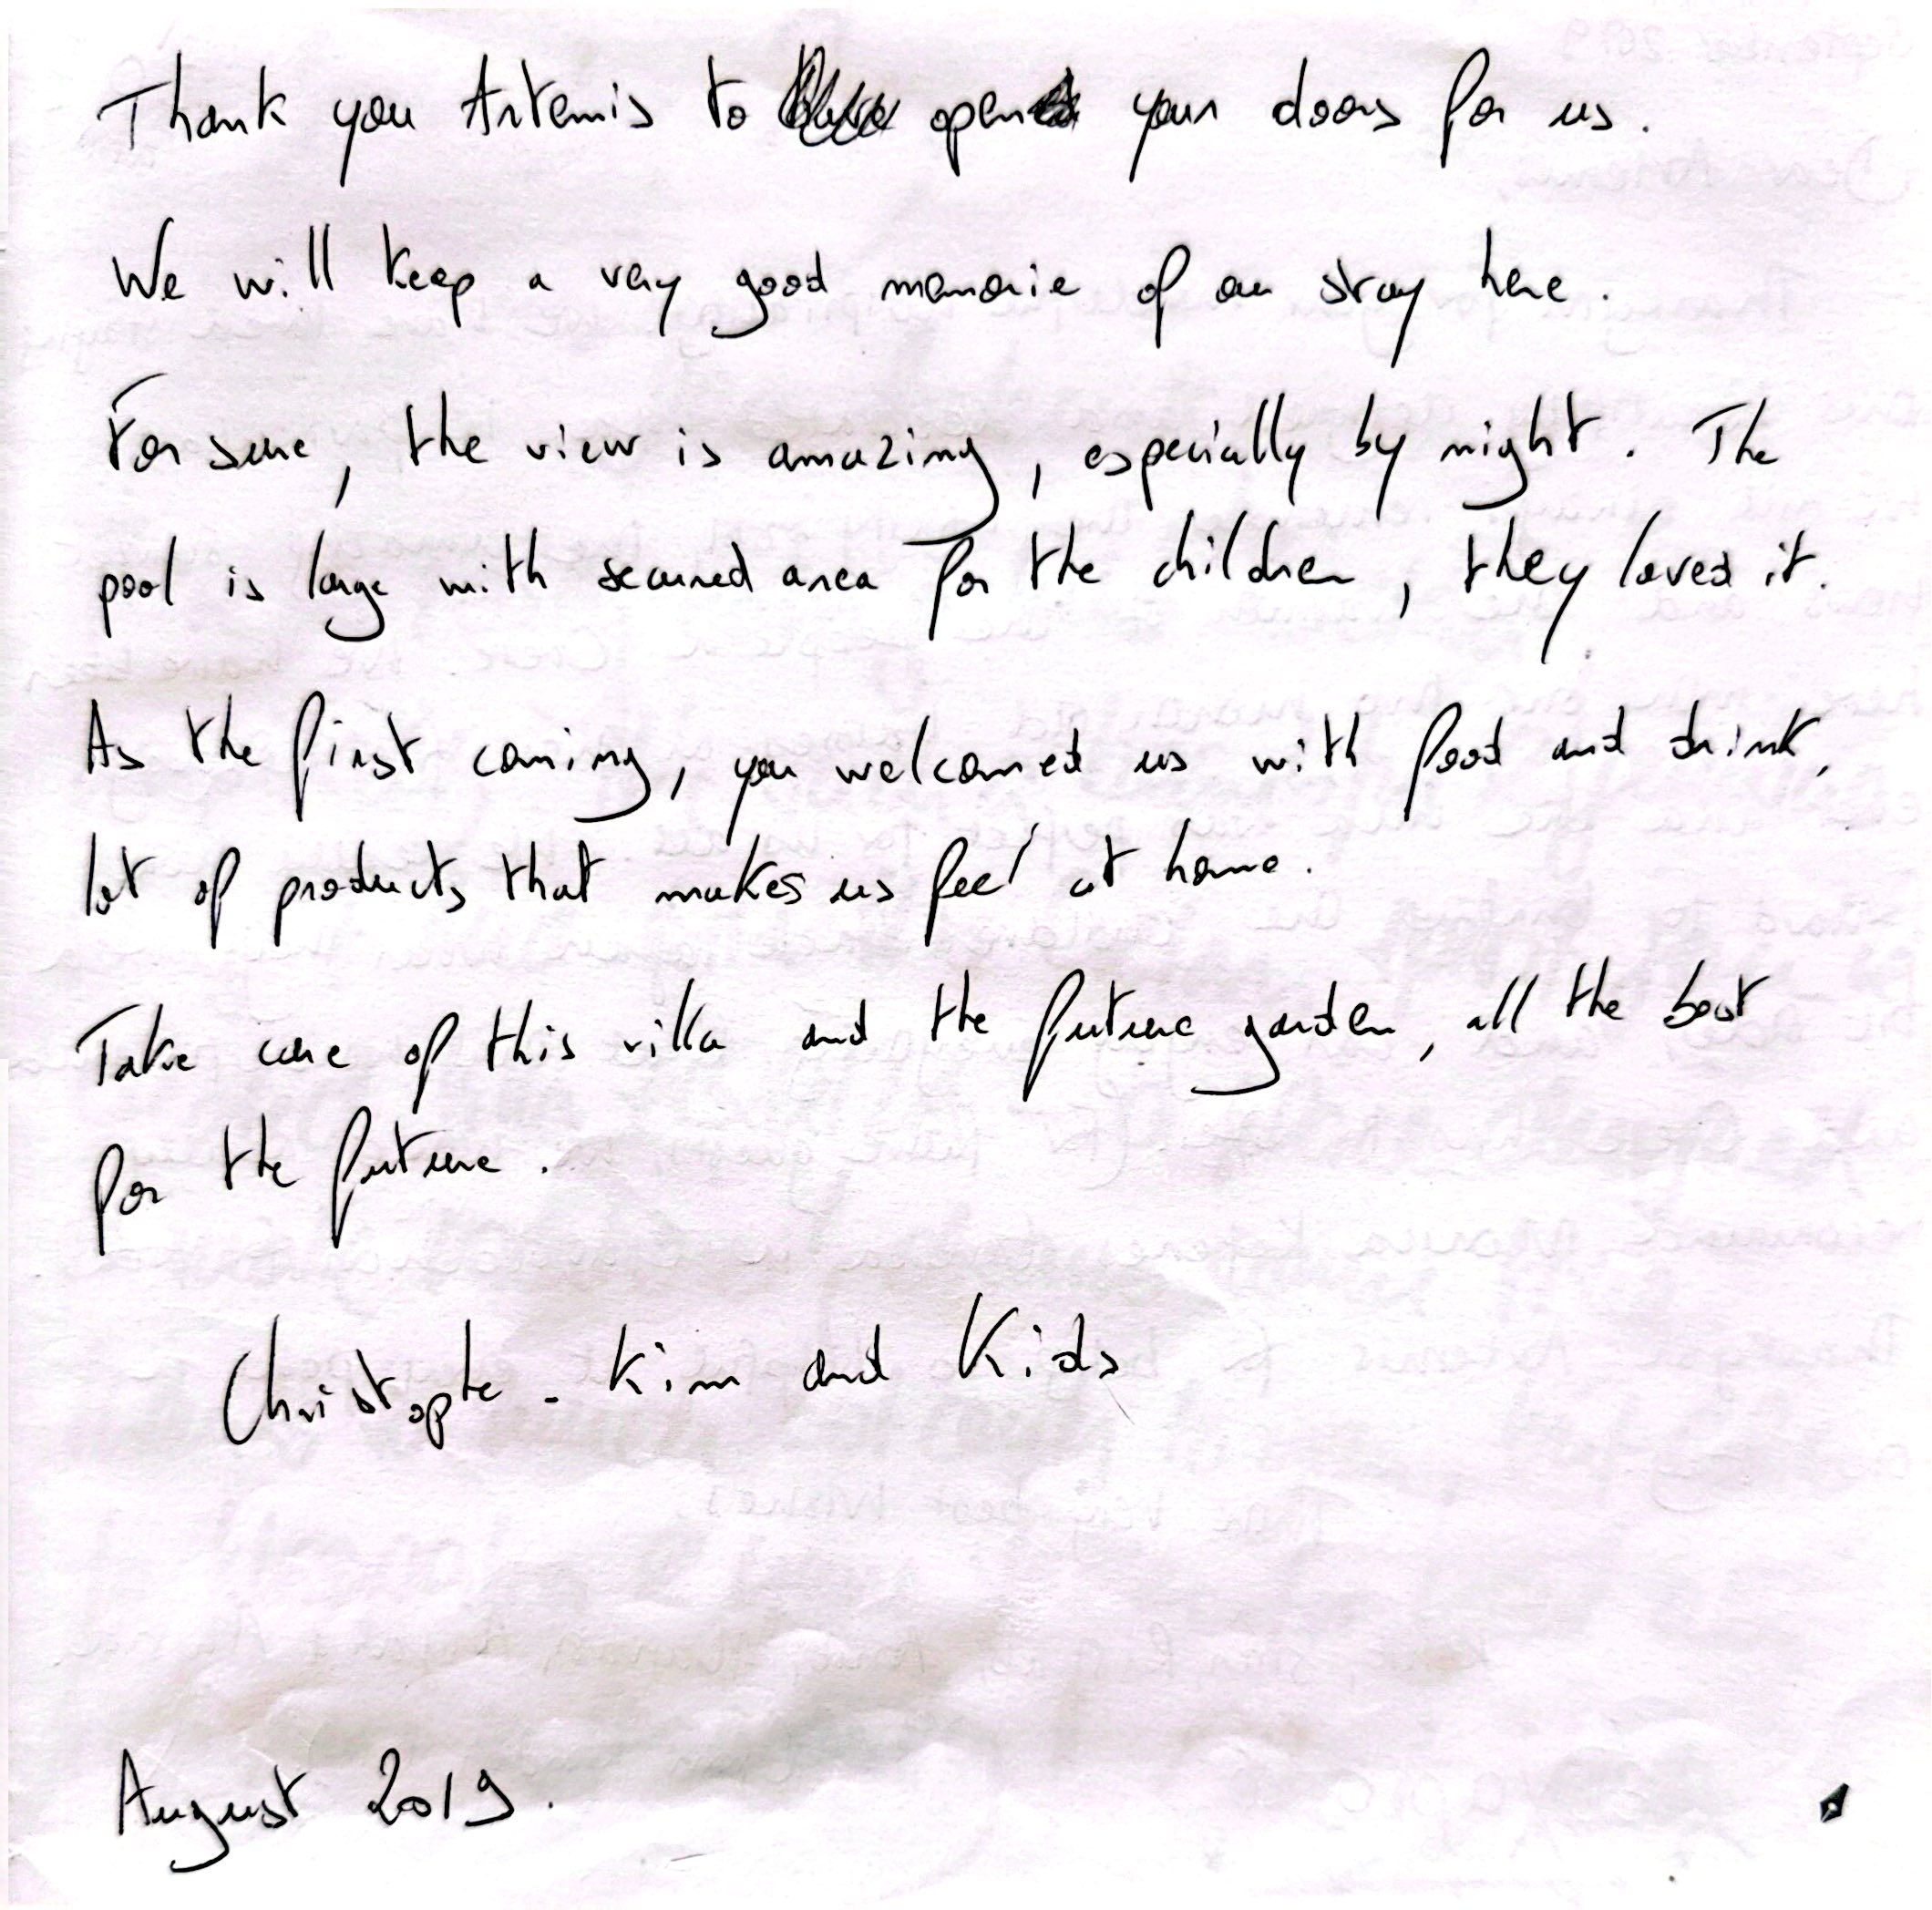 Thank you Artemis to open your doors for us.
We will keep a very good memorie of our stay here.
For sure, the view is amazing, especially by night. The
pool is large with secured area for the children, they loved it.
As the first coming, you welcomed us with food and drink,
lot of products that makes us feel at home.
Take care of this villa and the future garden, all the best
for the future.
Christophe - Kim and Kids
August 2019.